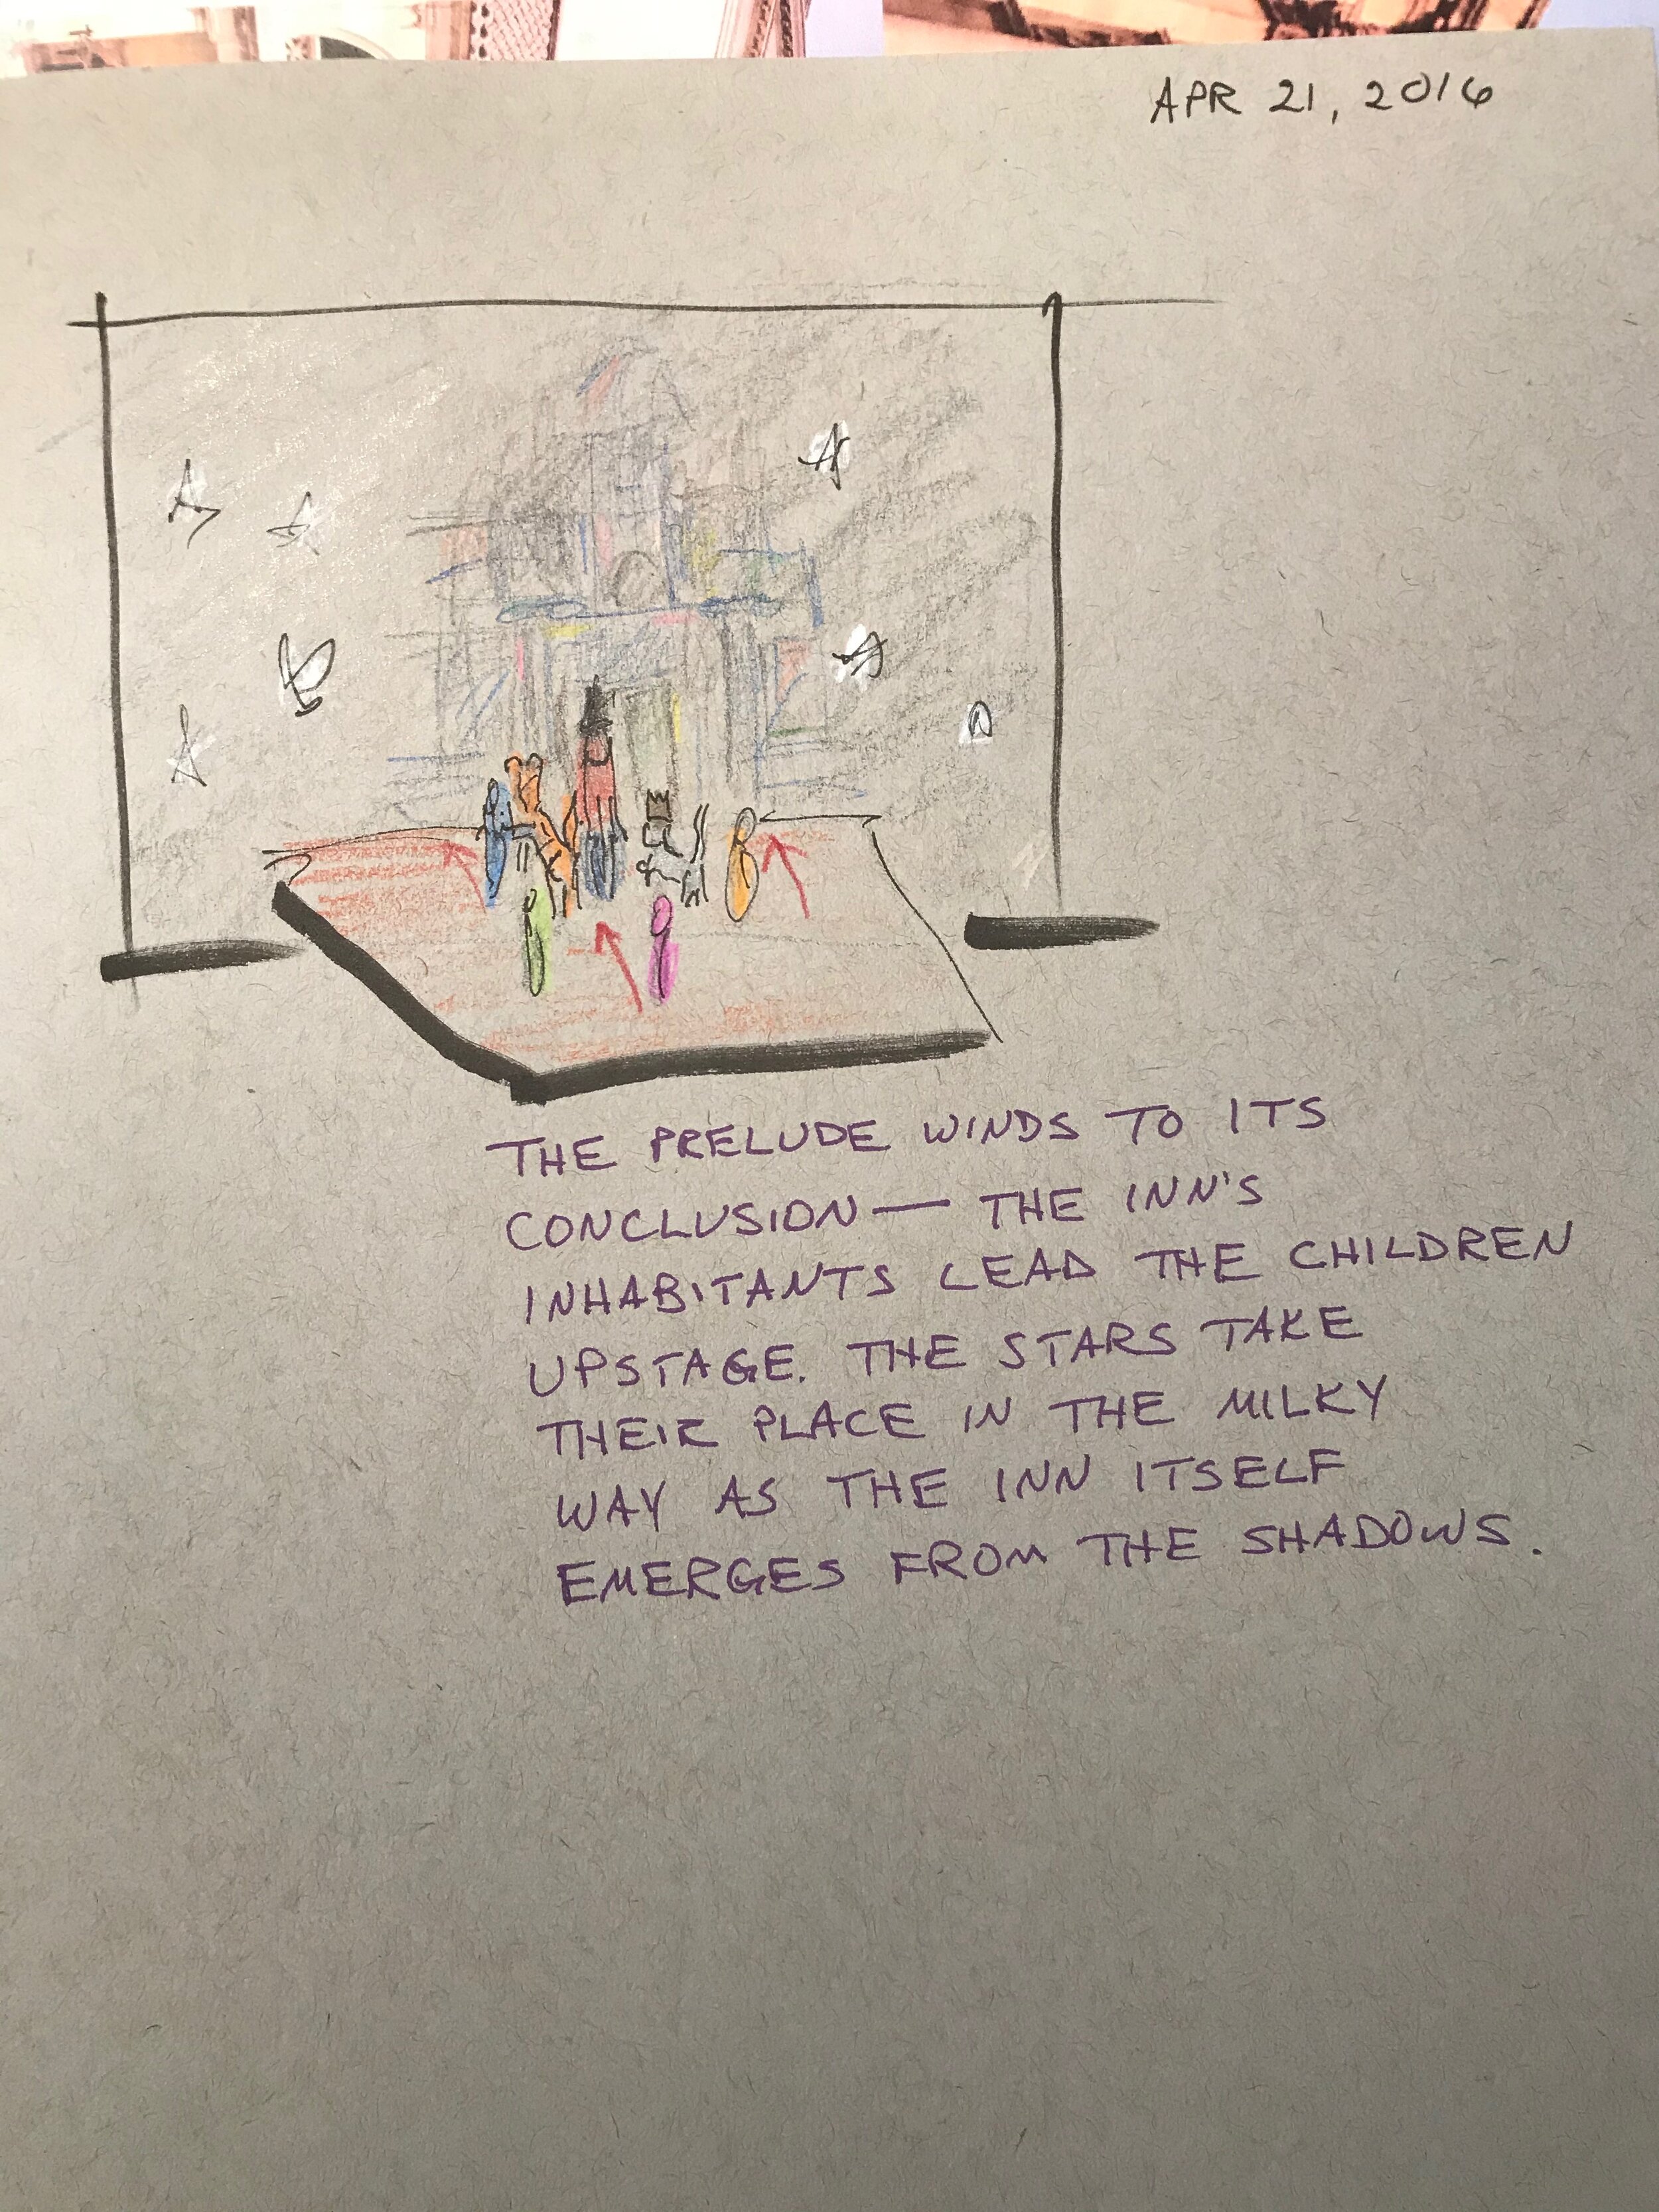 APR 21, 2016
THE PRELUDE WINDS TO ITS
CONCLUSION — THE INN'S
INHABITANTS LEAD THE CHILDREN
UPSTAGE. THE STARS TAKE
THEIR PLACE IN THE MILKY
WAY AS THE INN ITSELF
EMERGES FROM THE SHADOWS.